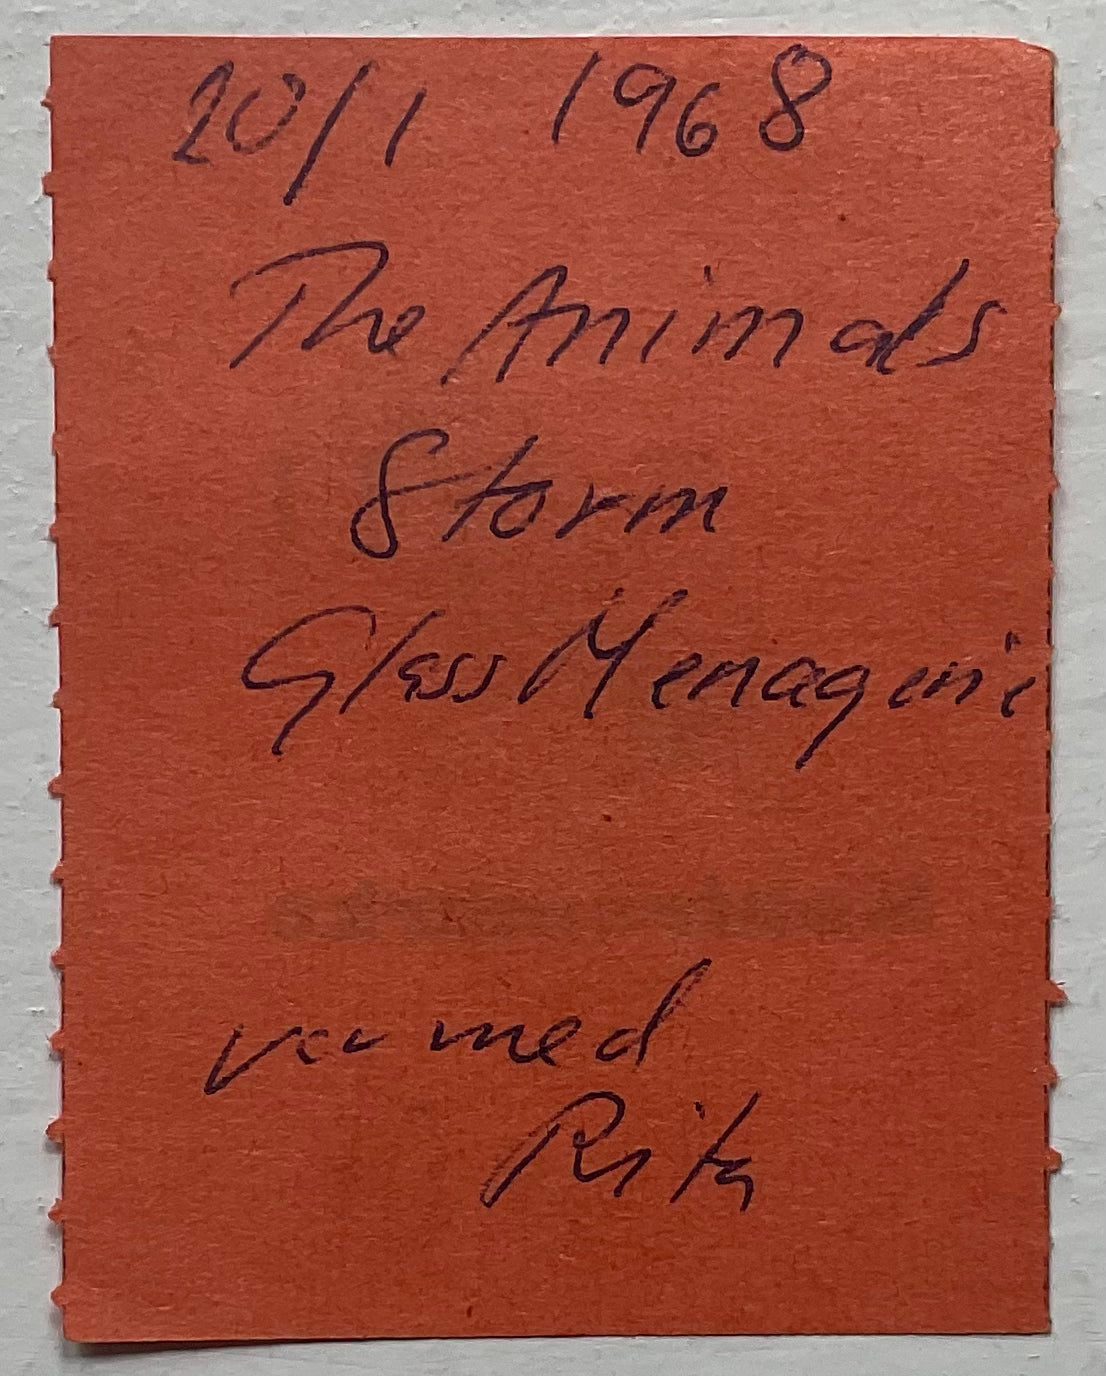 20/1 1968
The Animals
Storm
Glass Menagerie
var med
Rita